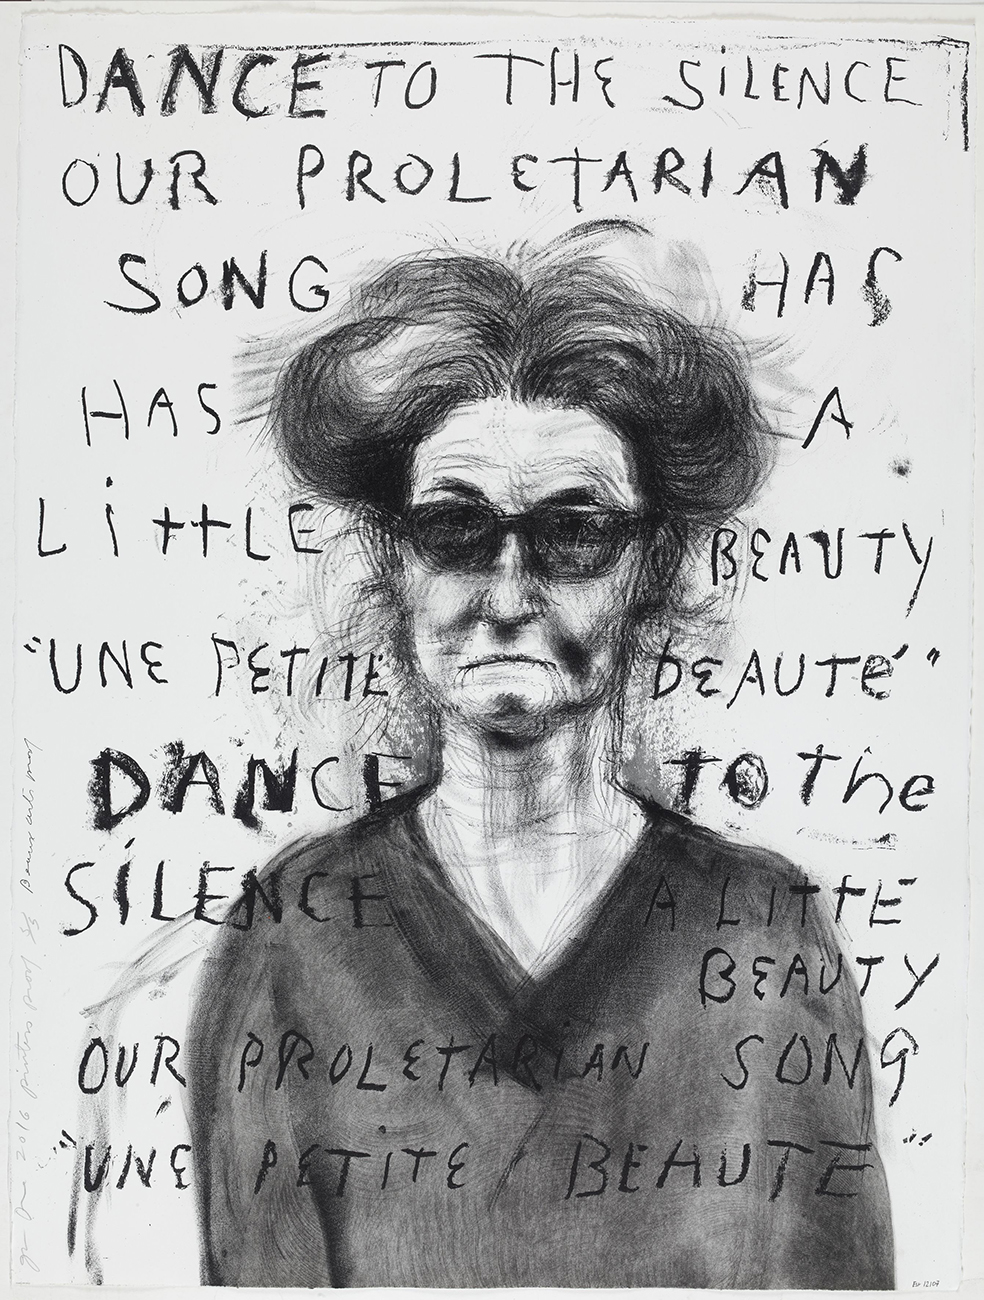 DANCE TO THE SiLENCE
OUR PROLETARIAN
SONG HAS
HAS A
LittLE BEAUTY
"UNE PETITE bEAUTé"
DANCE TO the
SiLENCE A LITtE
BEAUTY
OUR PROLETARiAN SONG
"UNE PETITE BEAUTE"
2016 printers proof 3/3